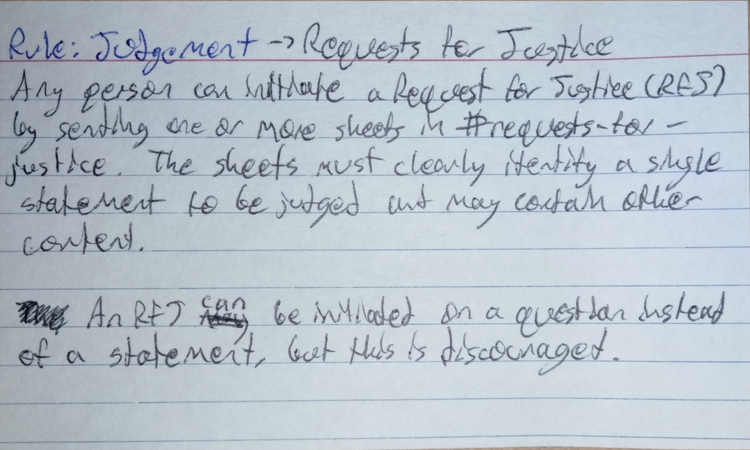 Rule: Judgement → Requests for Justice
Any person can initiate a Request for Justice (RFJ)
by sending one or more sheets in #requests-for-
justice. The sheets must clearly identify a single
statement to be judged but may contain other
content.
An RFJ can be initiated on a question instead
of a statement, but this is discouraged.